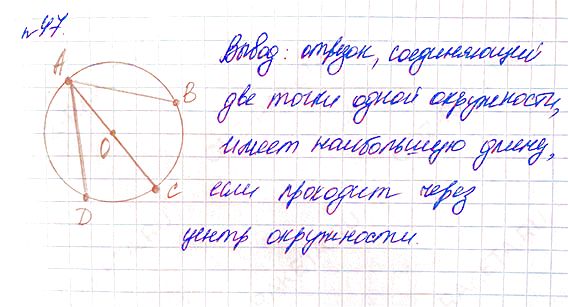 №47.
Вывод: отрезок, соединяющий
две точки одной окружности,
имеет наибольшую длину,
если проходит через
центр окружности.
A
B
O
C
D